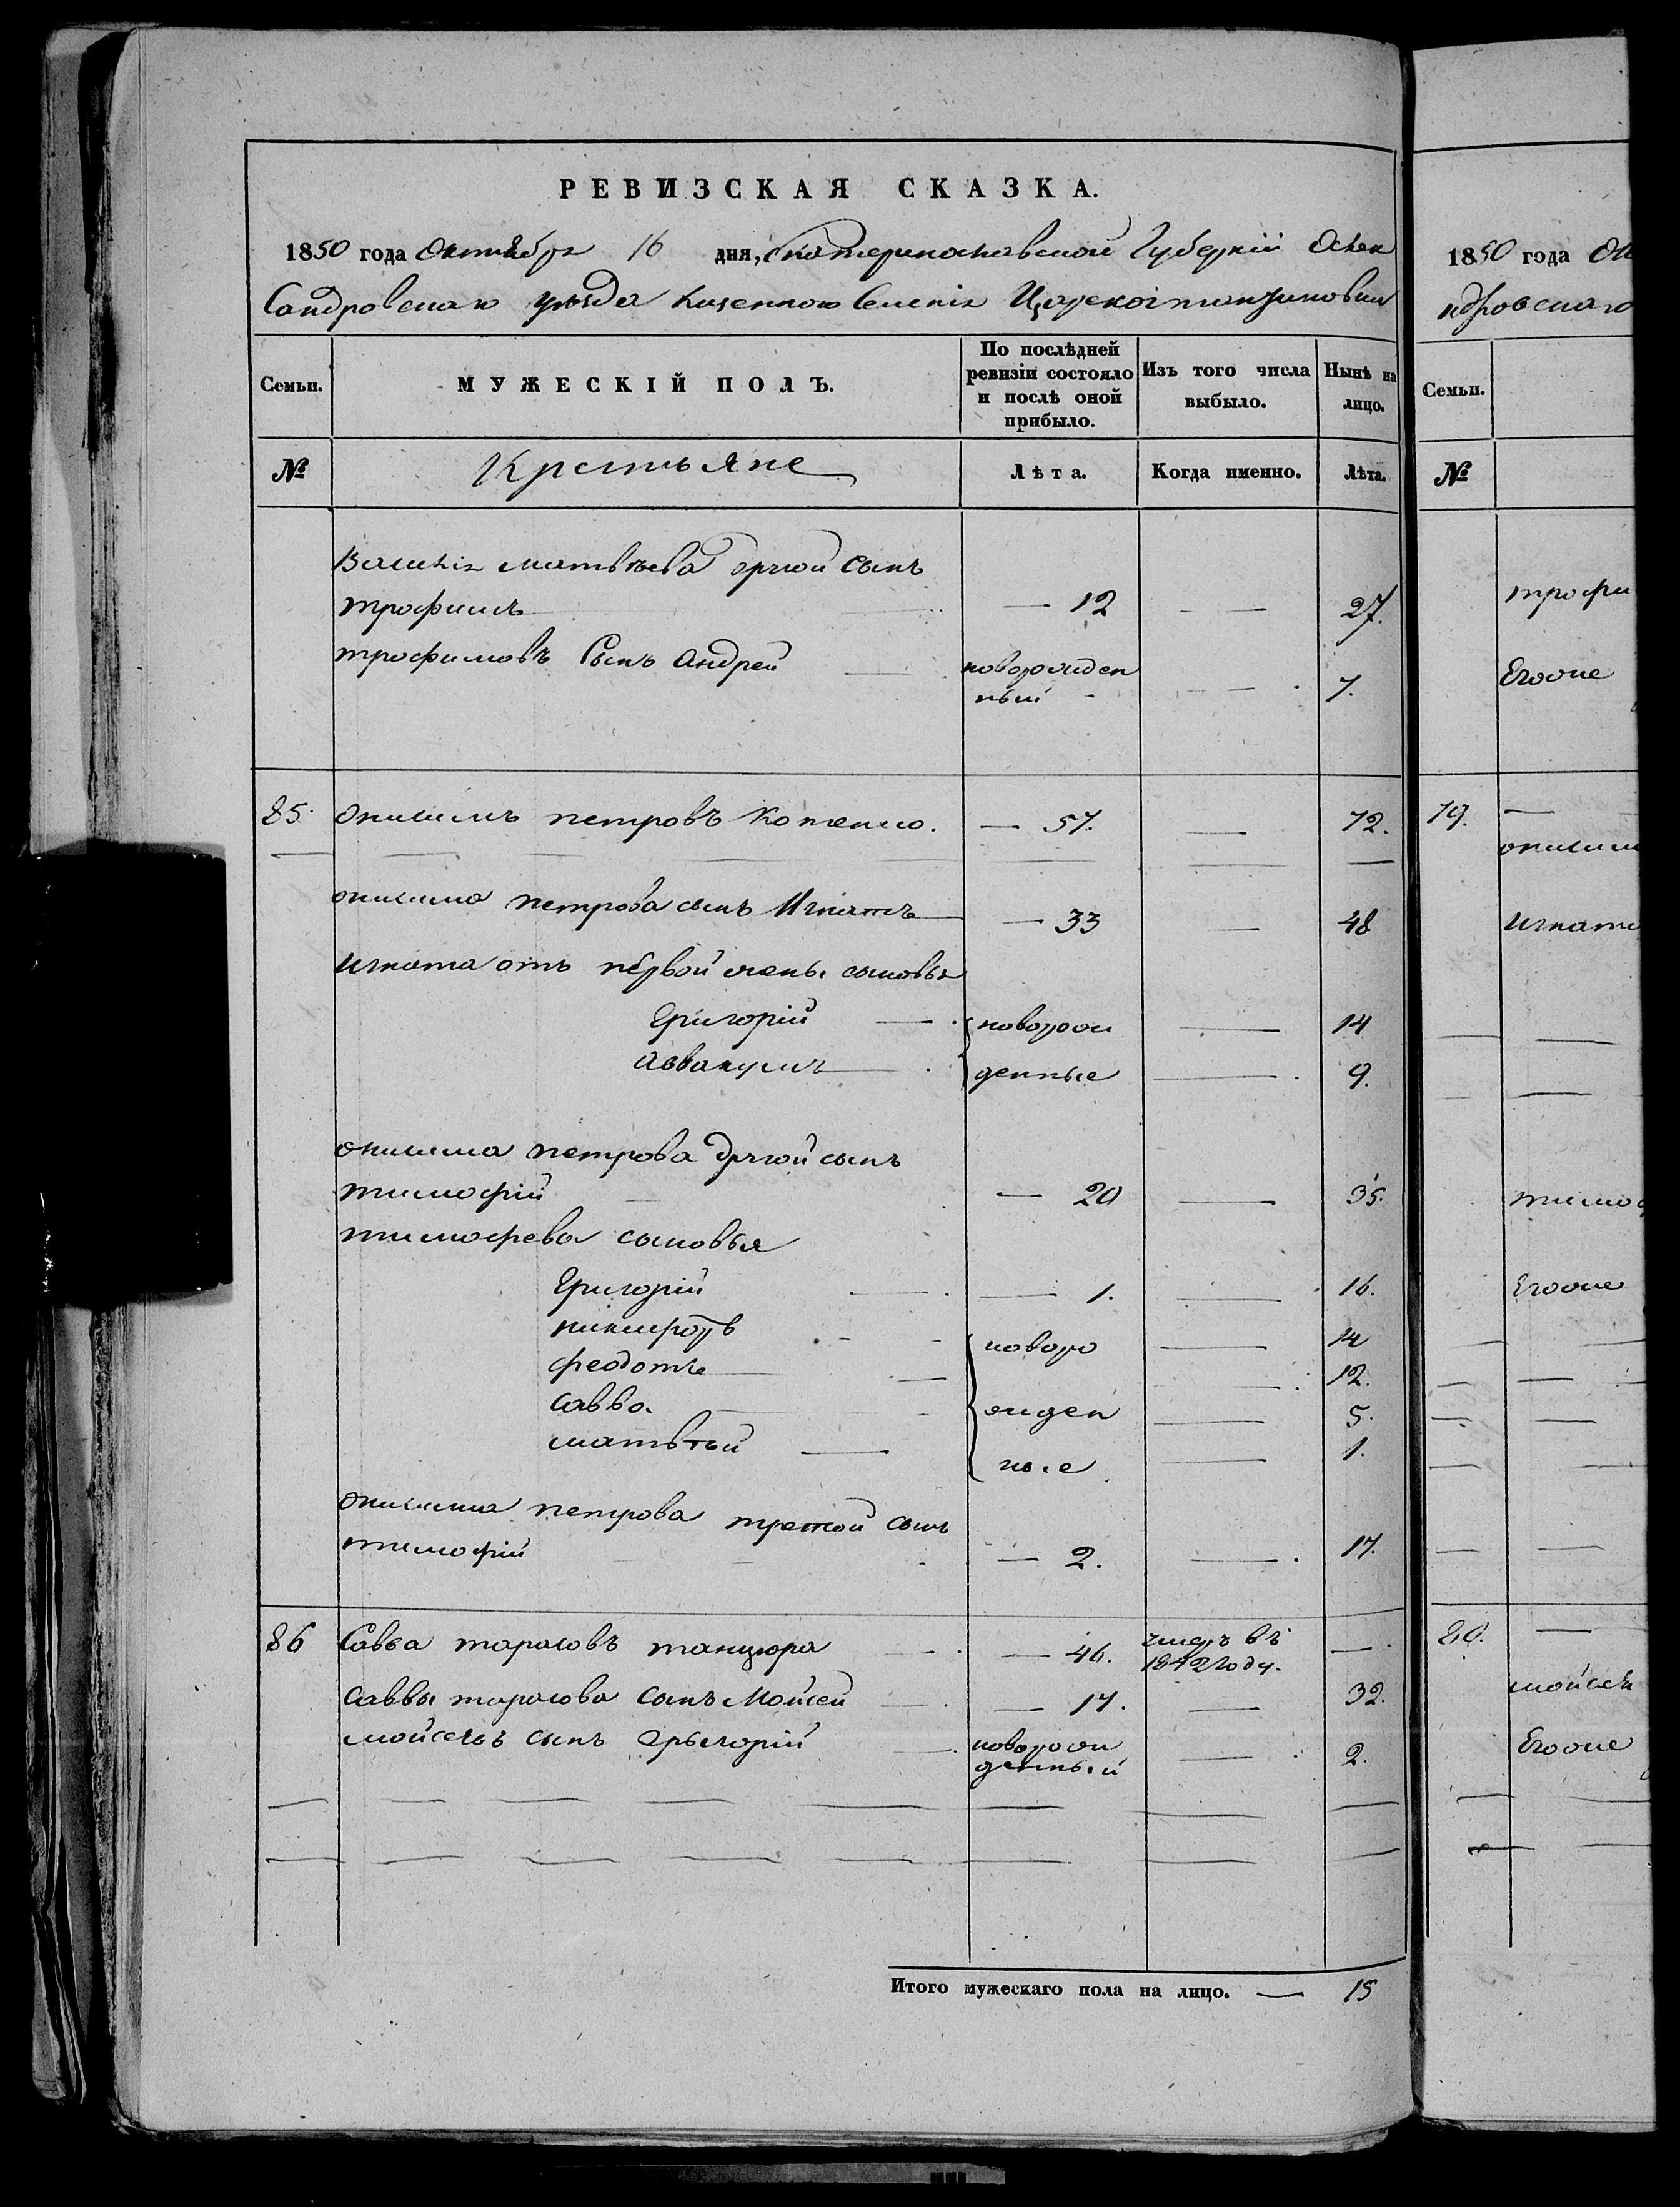 РЕВИЗСКАЯ СКАЗКА.
1850 года Октября 16 дня, Екатеринославской Губерніи Алек
Сандровскаго уѣзда Казеннаго Селенія Царекоптантиновки
Семьи. МУЖЕСКІЙ ПОЛЪ. По послѣдней ревизіи состояло и послѣ оной прибыло. Изъ того числа выбыло. Нынѣ на лицо.
№ Крестьяне Лѣта. Когда именно. Лѣта.
Василія матвѣева другой сынъ
трофимъ — 12 — 27.
трофимовъ Сынъ андрей новорожден
ный - — 7.
85. Онисимъ петровъ Котенко. — 57. — 72.
онисима петрова сынъ Игнатъ — 33 — 48
игната отъ первой жены сыновья
Григорій — новорож — 14
аввакумъ — денные — 9.
онисима петрова другой сынъ
тимофій — 20 — 35.
тимофева сыновья
Григорій — 1. — 16.
никифоръ новоро — 14
феодотъ — — 12.
савва. жден — 5.
матвѣй — ные — 1.
онисима петрова третой сынъ
тимофій — 2. — 17.
86 Савва тарасовъ танцюра — 46. умеръ въ
1842 году. —
саввы тарасова сынъ Мойсей — 17. — 32.
мойсеевъ сынъ грыгорій новорож
денный — 2.
Итого мужескаго пола на лицо. — 15
1850 года Ок
ндровскаго
Семьи.
№
трофи
Егоже
79. —
онисим
игнат
тимоф
Егоже
80. —
мойсея
Егоже